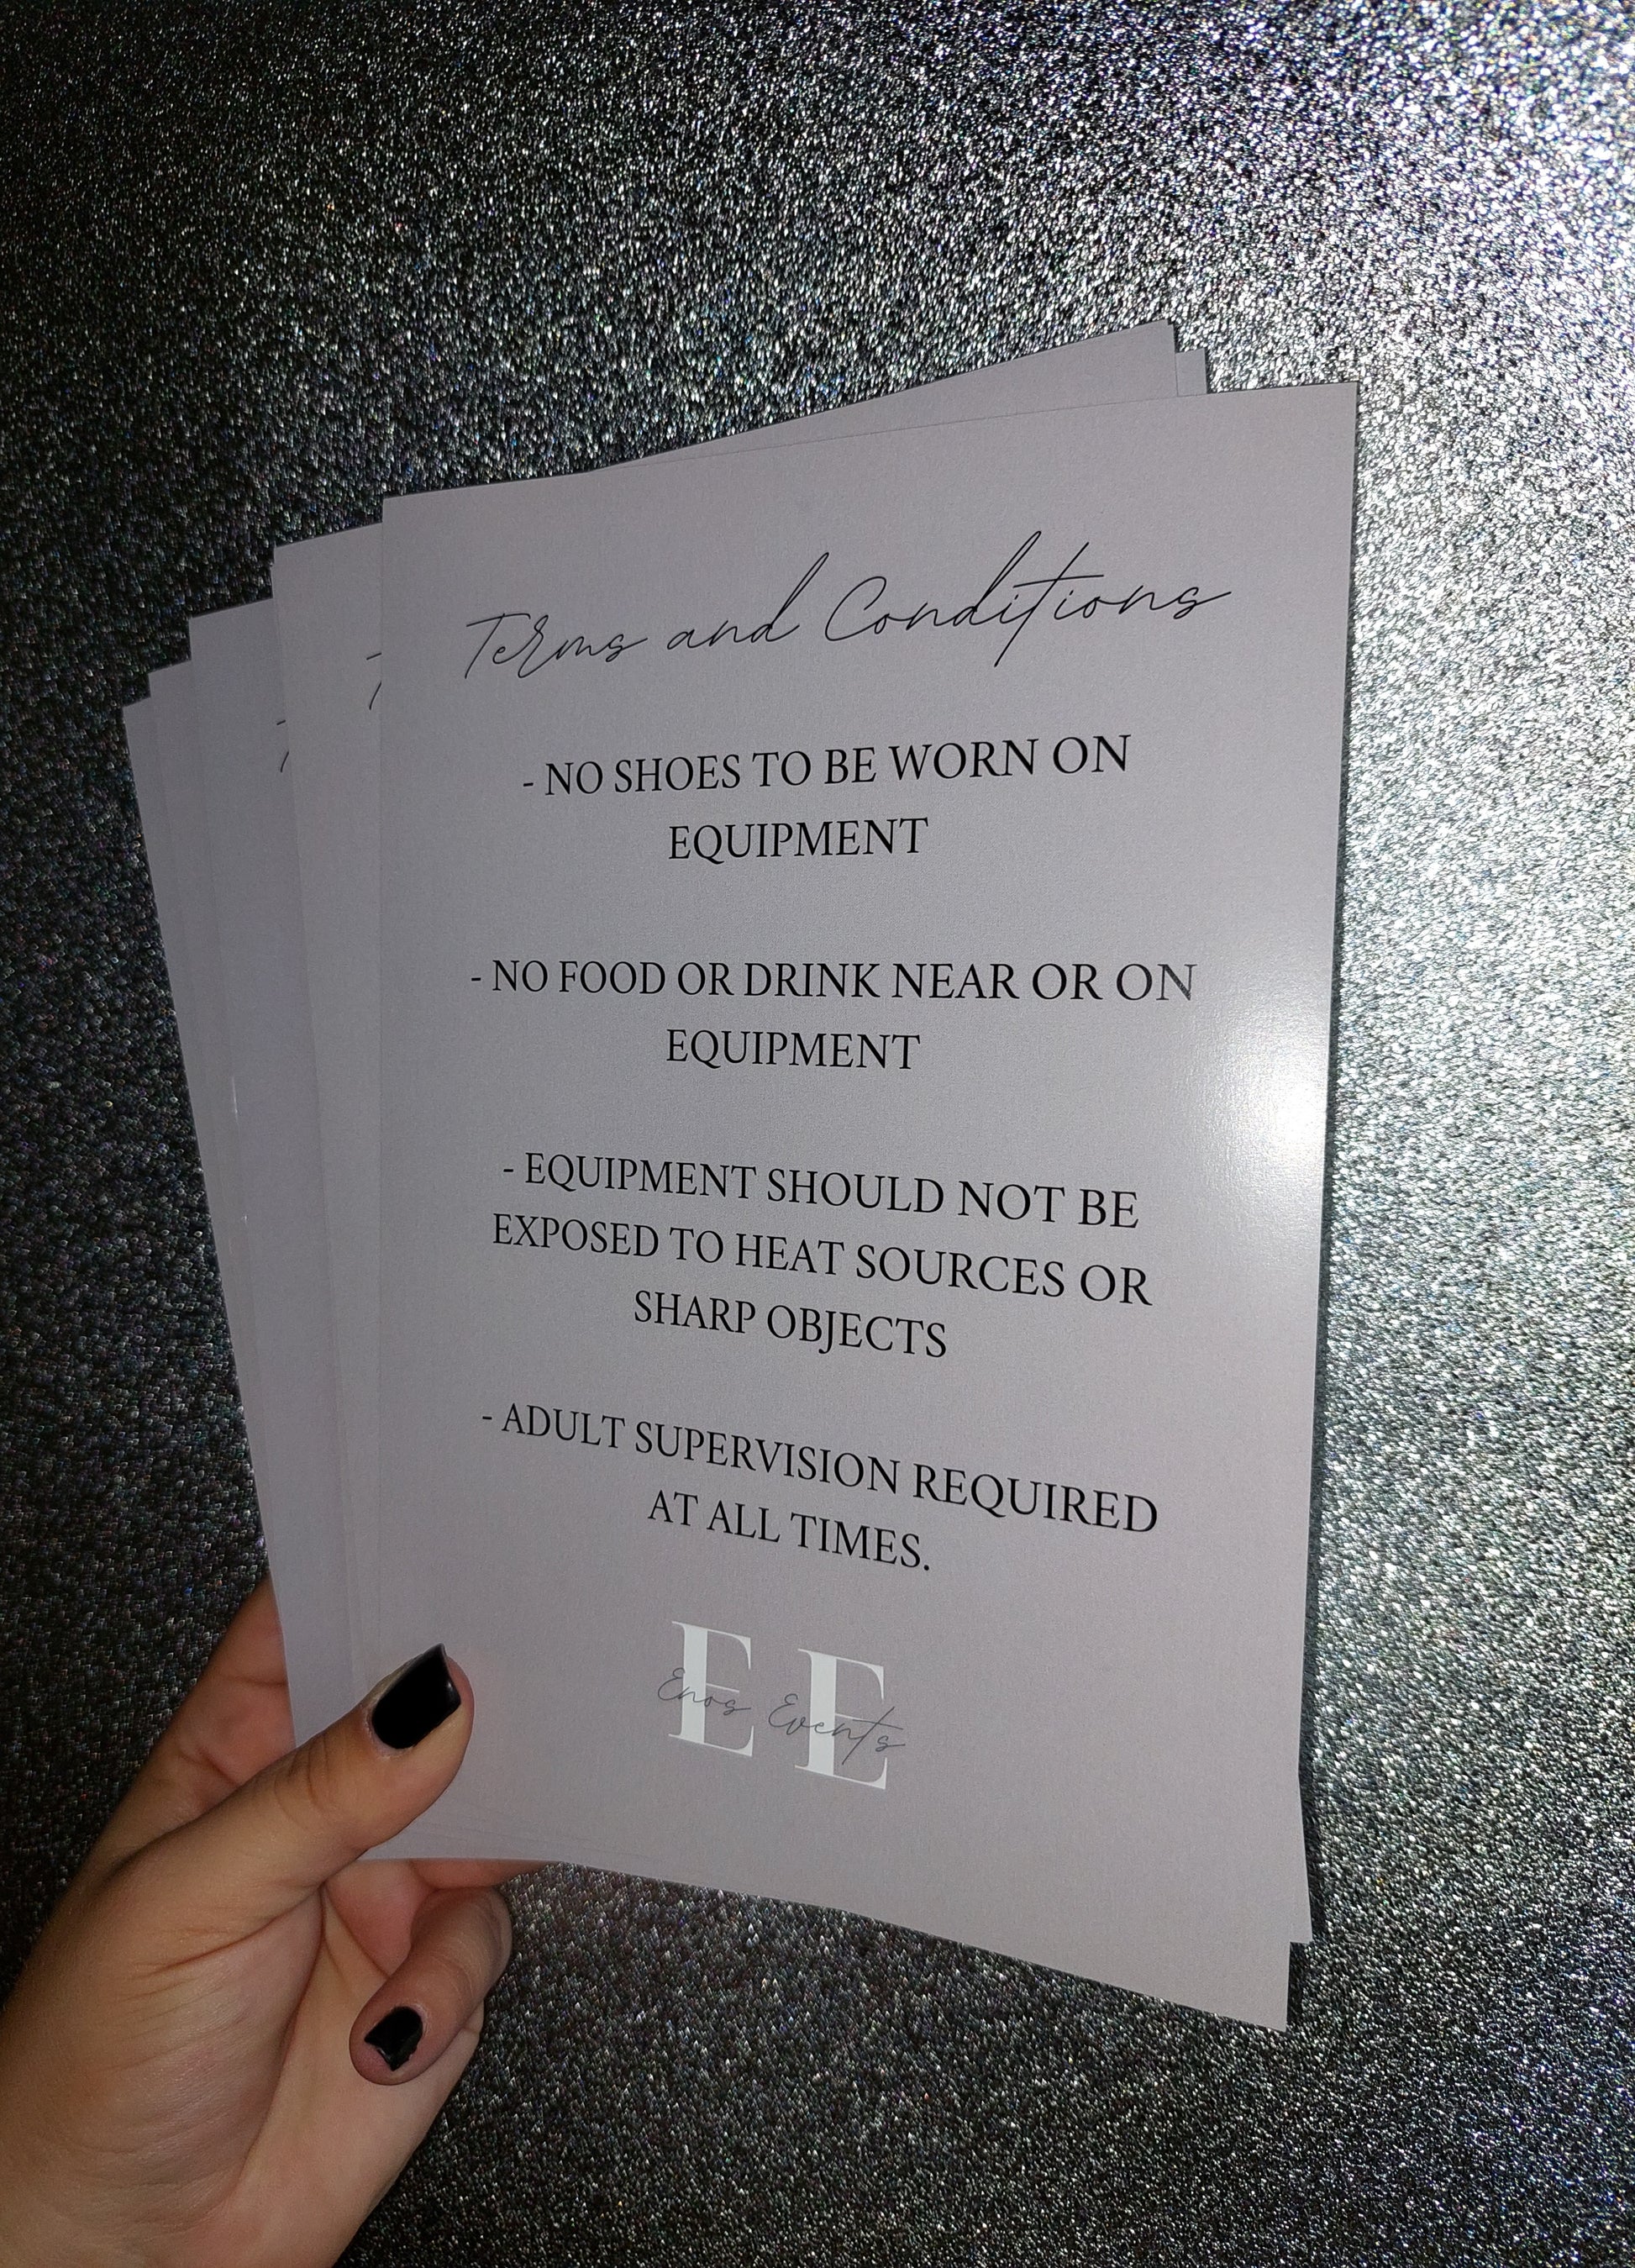 Terms and Conditions
- NO SHOES TO BE WORN ON
EQUIPMENT
- NO FOOD OR DRINK NEAR OR ON
EQUIPMENT
- EQUIPMENT SHOULD NOT BE
EXPOSED TO HEAT SOURCES OR
SHARP OBJECTS
- ADULT SUPERVISION REQUIRED
AT ALL TIMES.
E E
Enos Events